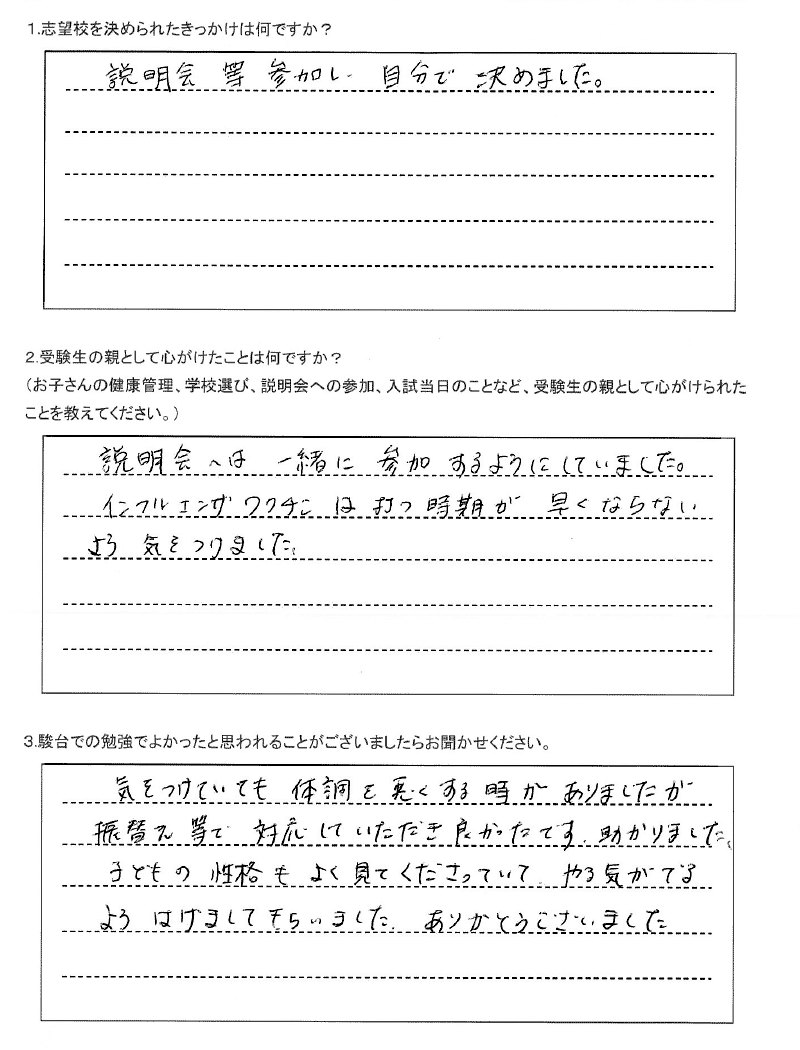 1.志望校を決められたきっかけは何ですか？
説明会 等 参加し 自分で 決めました。
2.受験生の親として心がけたことは何ですか？
（お子さんの健康管理、学校選び、説明会への参加、入試当日のことなど、受験生の親として心がけられた
ことを教えてください。）
説明会へは 一緒に 参加 するようにしていました。
インフルエンザワクチン は 打つ 時期が 早くならない
よう 気をつけました。
3.駿台での勉強でよかったと思われることがございましたらお聞かせください。
気をつけていても 体調を悪くする時が ありましたが
振替え等で 対応していただき良かったです。助かりました。
子どもの 性格も よく見てくださっていて やる気がでる
よう はげまして もらいました。ありがとうございました